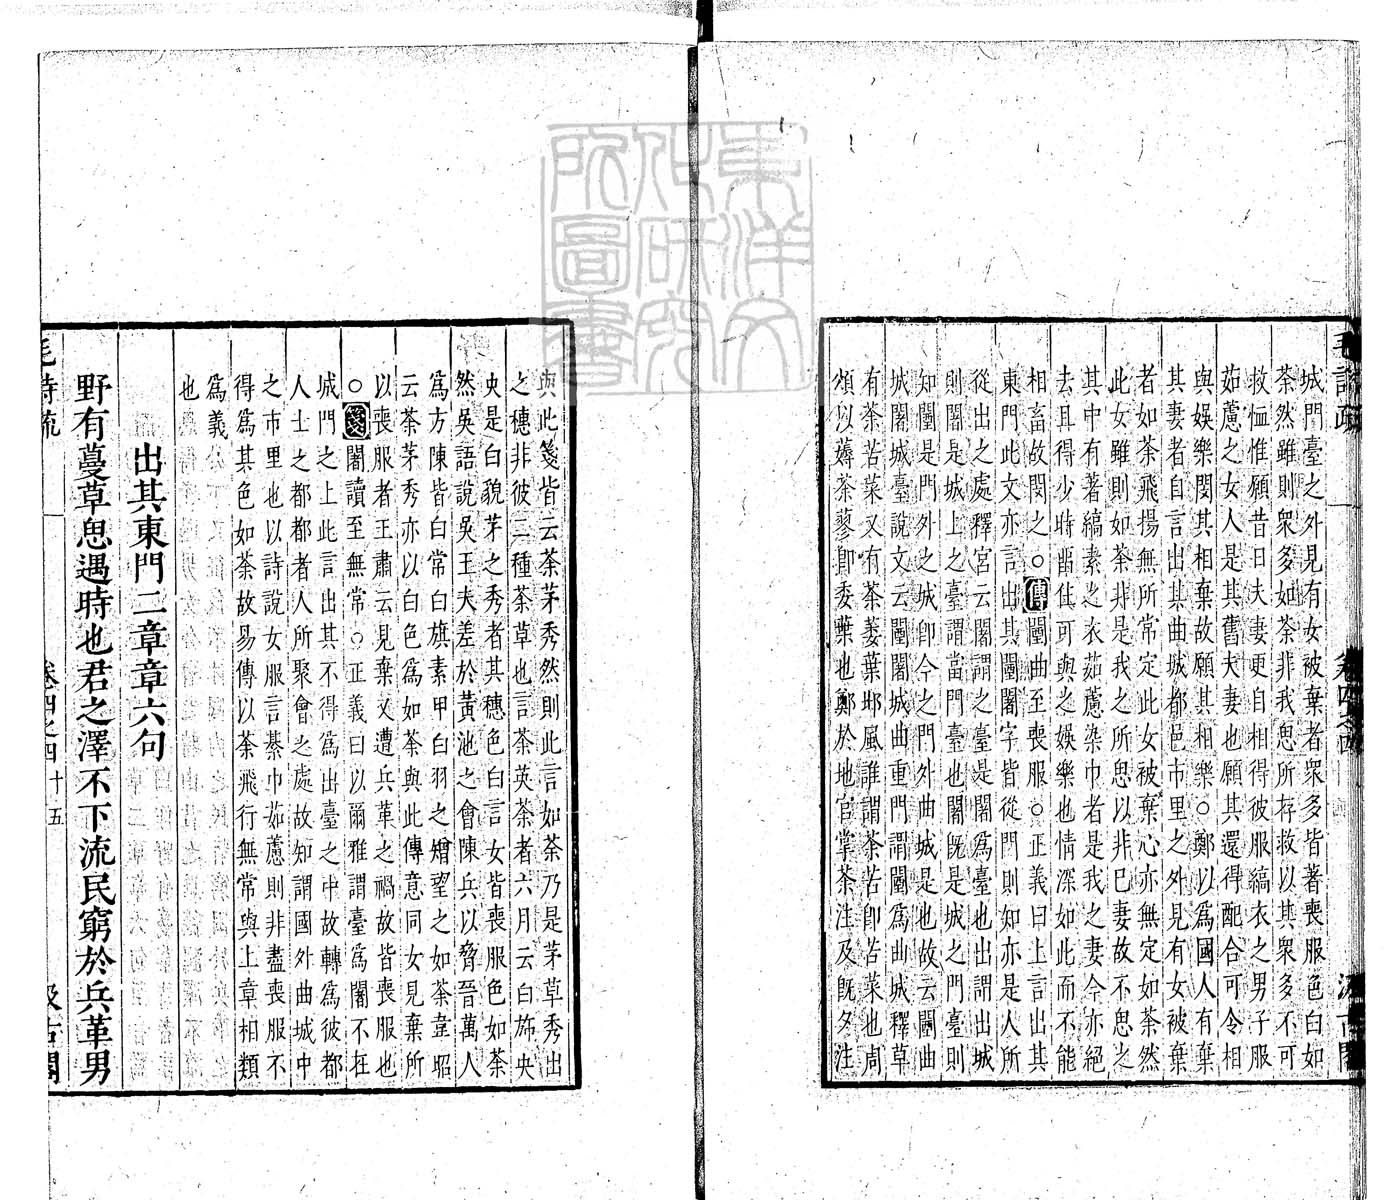 毛詩疏 卷四之四 汲古閣
城門臺之外見有女被棄者眾多皆著喪服色白如
荼然雖則眾多如荼非我思所存救以其眾多不可
救恤惟願昔日夫妻更自相得彼服縞衣之男子服
茹藘之女人是其舊夫妻也願其還得配合可令相
與娛樂閔其相棄故願其相樂○鄭以為國人有棄
其妻者自言出其曲城都邑市里之外見有女被棄
者如荼飛揚無所常定此女被棄心亦無定如荼然
此女雖則如荼非是我之所思以非已妻故不思之
其中有著縞素之衣茹藘染巾者是我之妻今亦絕
去且得少時畱住可與之娛樂也情深如此而不能
相畜故閔之○傳闉曲至喪服○正義曰上言出其
東門此文亦言出其闉闍字皆從門則知亦是人所
從出之處釋宮云闍謂之臺是闍為臺也出謂出城
則闍是城上之臺謂當門臺也闍既是城之門臺則
知闉是門外之城即今之門外曲城是也故云闉曲
城闍城臺說文云闉闍城曲重門謂闉為曲城釋草
有荼苦菜又有荼萎葉邶風誰謂荼苦即苦菜也周
頌以薅荼蓼即委葉也鄭於地官掌荼注及既夕注
與此箋皆云荼茅秀然則此言如荼乃是茅草秀出
之穗非彼二種荼草也言荼英荼者六月云白斾央
央是白貌茅之秀者其穗色白言女皆喪服色如荼
然吳語說吳王夫差於黃池之會陳兵以脅晉萬人
為方陳皆白常白旗素甲白羽之矰望之如荼韋昭
云荼茅秀亦以白色為如荼與此傳意同女見棄所
以喪服者王肅云見棄又遭兵革之禍故皆喪服也
○箋闍讀至無常○正義曰以爾雅謂臺為闍不在
城門之上此言出其不得為出臺之中故轉為彼都
人士之都都者人所聚會之處故知謂國外曲城中
之市里也以詩說女服言綦巾茹藘則非盡喪服不
得為其色如荼故易傳以荼飛行無常與上章相類
為義
也
出其東門二章章六句
野有蔓草思遇時也君之澤不下流民窮於兵革男
毛詩疏 卷四之四 十五 汲古閣